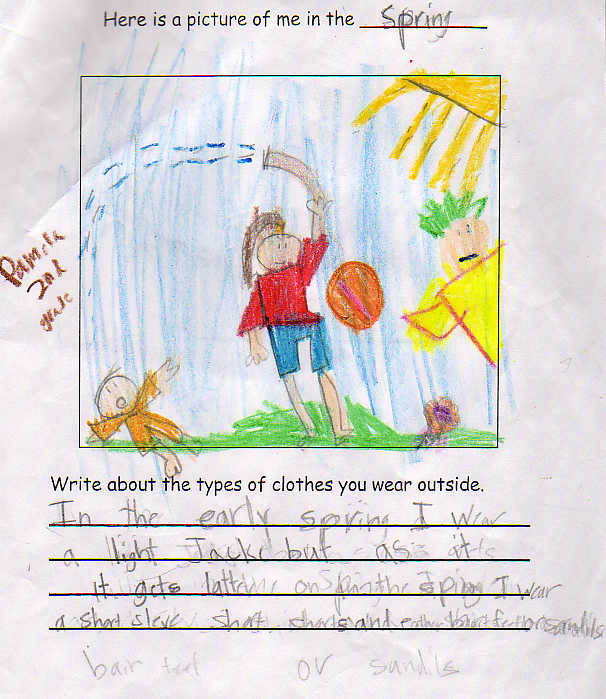 Here is a picture of me in the spring
Pamela
2nd
grade
Write about the types of clothes you wear outside.
In the early spring I wear
a llight Jacke but as it
It gets latter on the sping I wear
a short sleve short shorts and or sandils
bair feet or sandils